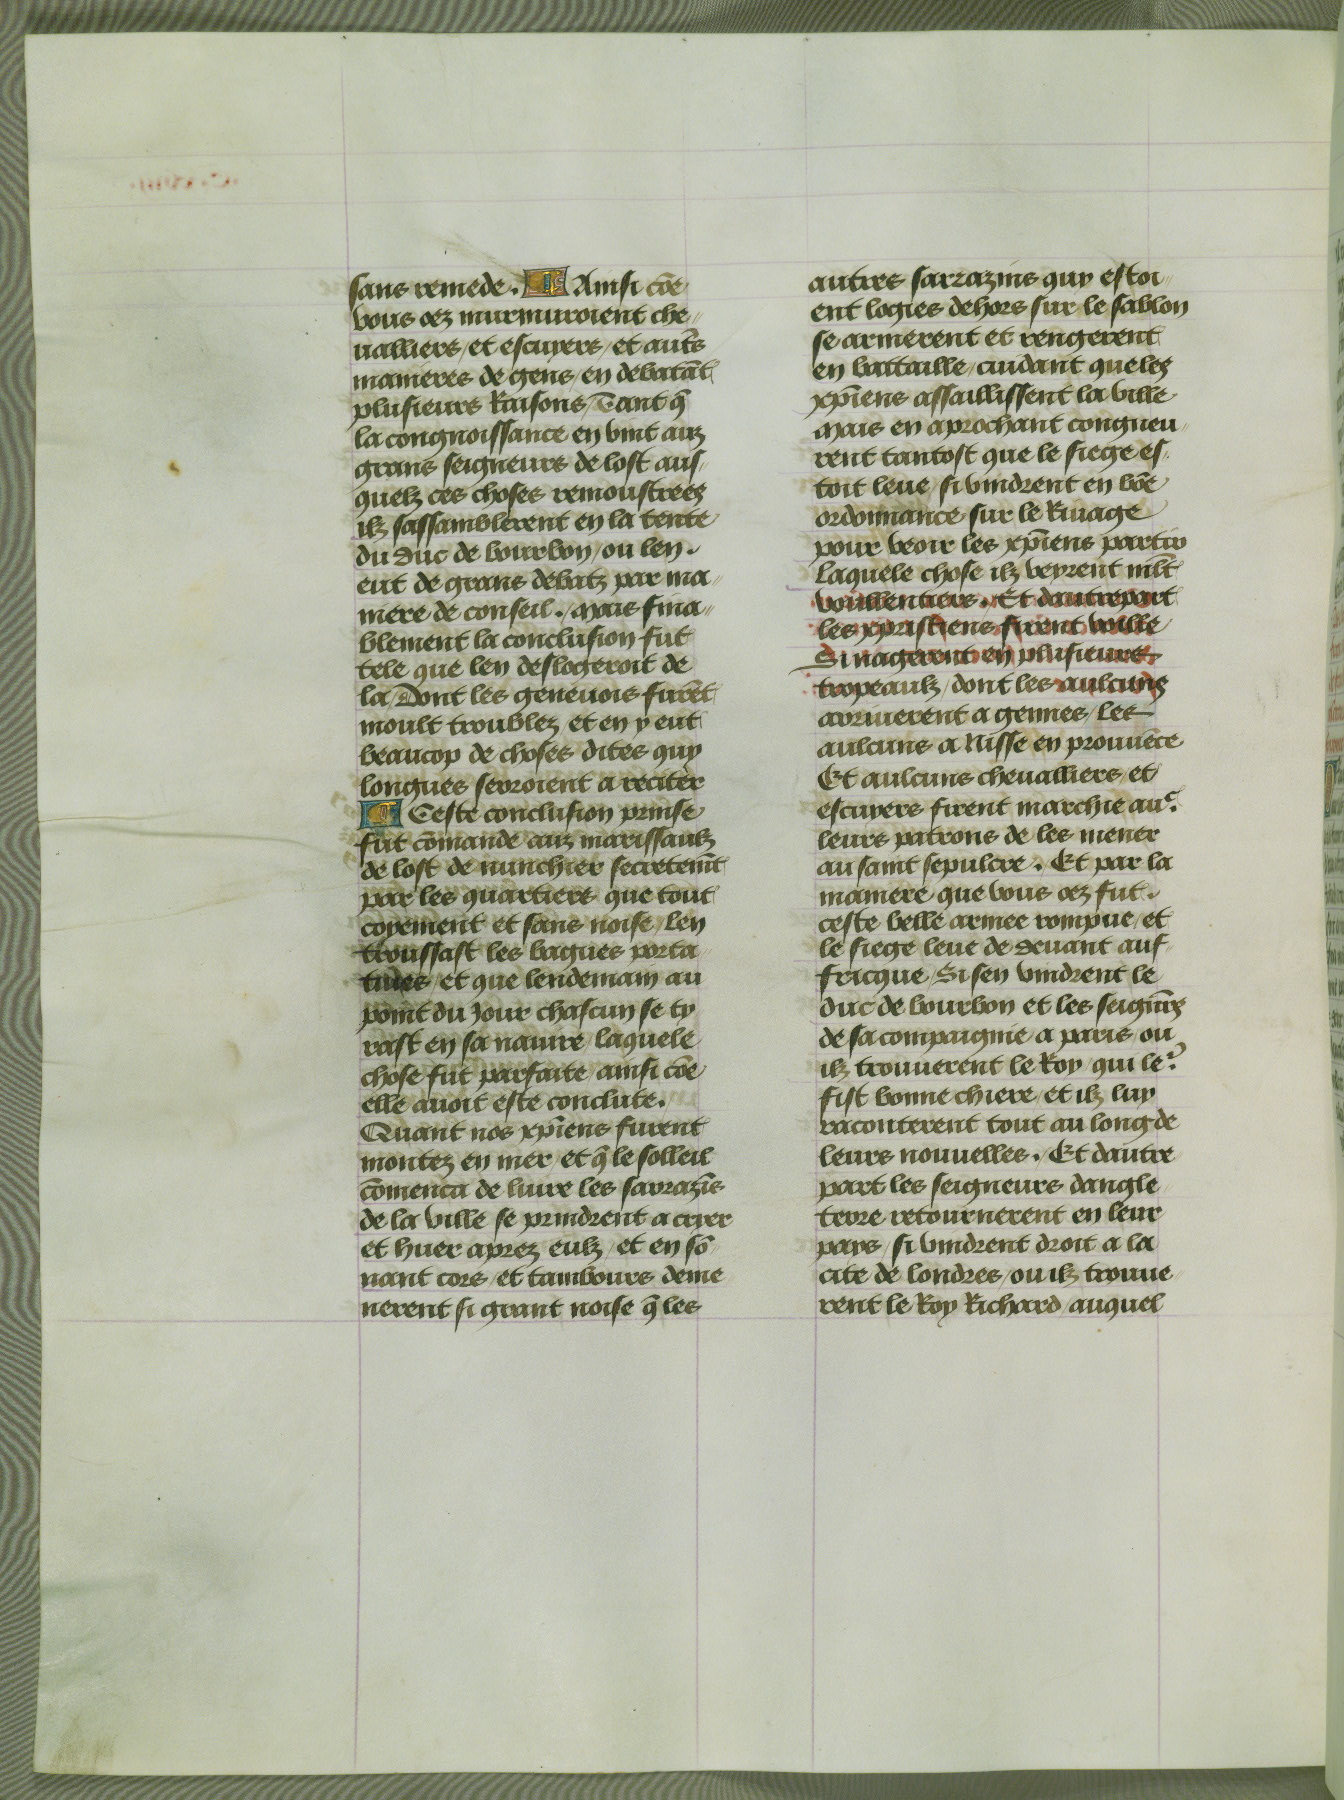 sans remede. ¶ Ainsi cōe
vous oez murmuroient che
ualliers / et escuyers / et autr̄s
manieres de gens / en debatāt
plusieurs Raisons / Tant q̄
la congnoissance en vint auz
grans seigneurs de lost aus
quelz ces choses remoustrees
ilz sassamblerent en la tente
du duc de bourbon / ou len
eut de grans debatz par ma
niere de conseil. mais fina
blement la conclusion fut
tele que len deslogeroit de
la / Dont les geneuois furēt
moult troublez / et en y eut
beaucop de choses dites quy
longues seroient a reciter
¶ Ceste conclusion prinse
fut cōmande auz marissaulz
de lost de nunchier secretemēt
par les quartiers que tout
coyement et sans noise / len
troussast les bagues porta
tiues / et que lendemain au
point du Jour chascun se ty
rast en sa nauire / laquele
chose fut parfaite / ainsi cōe
elle auoit este conclute.
Quant nos xp̄iens furent
montez en mer / et q̄ le solleil
cōmenca de luire les sarrazīs
de la ville se prindrent a crier
et huer aprez eulz / et en sō
nant cors / et tambours deme
nerent si grant noise q̄ les
autres sarrazins quy estoi
ent logies dehors sur le sablon
se armerent et rengerent
en battaille / cuidant que les
xp̄iens assaillissent la ville
mais en aprochant congneu
rent tantost que le siege es
toit leue / si vindrent en bōe
ordonnance sur le Riuage
pour veoir les xp̄iens partir
laquele chose ilz veyrent mlt̄
voullentiers. Et dautrepart
les xpristiens firent voille
Si nagerent en plusieurs
tropeaulz / dont les aulcuns
arriuerent a gennes / les
aulcuns a Nisse en prouuēce
Et aulcuns cheualliers / et
escuyers firent marchie auc
leurs patrons de les mener
au saint sepulcre. Et par la
maniere que vous oez fut
ceste belle armee rompue / et
le siege leue de deuant auf
fricque / Si sen vindrent le
duc de bourbon et les seign̄rs
de sa compaignie a paris / ou
ilz trouuerent le Roy / qui le.̉
fist bonne chiere / et ilz luy
raconterent tout au long de
leurs nouuelles. Et dautre
part les seigneurs dangle
terre retournerent en leur
pays / si vindrent droit a la
cite de londres / ou ilz trouue
rent le Roy Richard / auquel